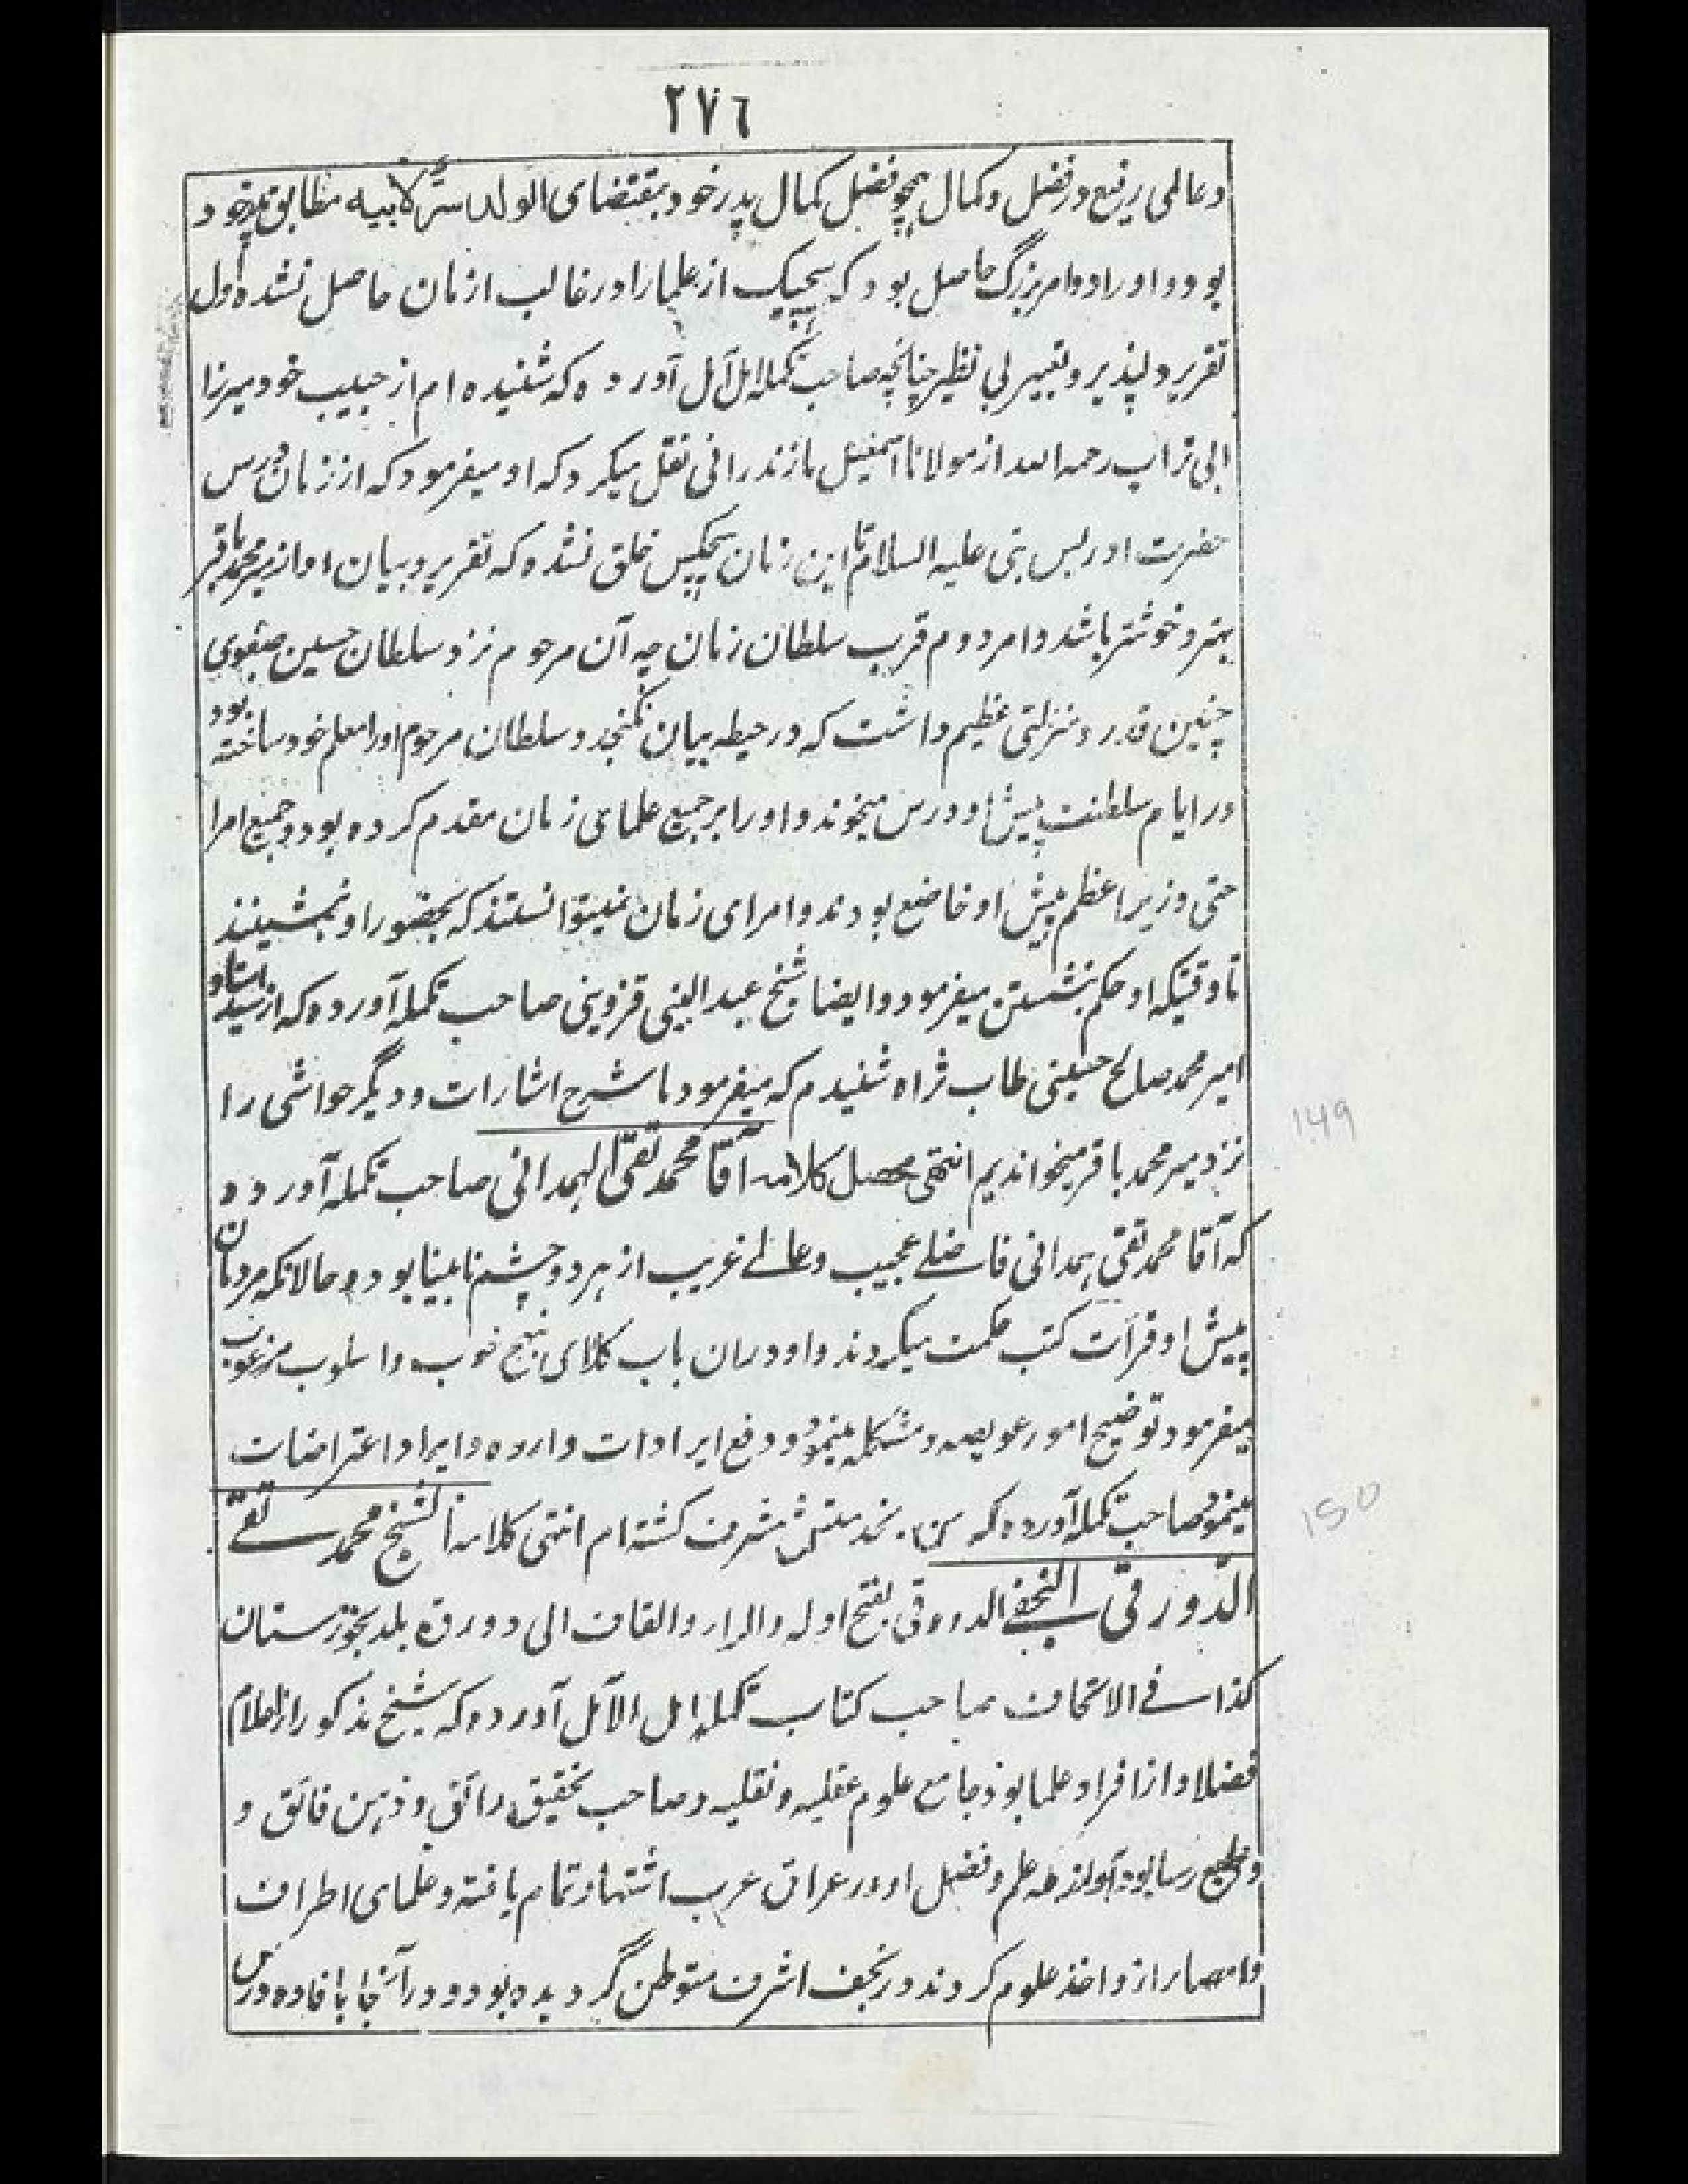 ٢٧٦
وعالمی رفیع در فضل و کمال همچو فضل کمال پدر خود بمقتضای الولد سرٌّ لابیه مطابق پدر خود
بود و او را دو امر بزرگ حاصل بود که هیچیک از علما را در غالب ازمان حاصل نشده اول
تقریر دلپذیر و تعبیر بی نظیر چنانچه صاحب تکمله امل آمل آورده که شنیده ام از حبیب خود میرزا
ابی تراب رحمه الله از مولانا اسمعیل مازندرانی نقل میکرد که او میفرمود که از زمان درس
حضرت ادریس نبی علیه السلام تا این زمان هیچکس خلق نشده که تقریر و بیان او از میر محمد باقر
بهتر و خوشتر باشد و امر دوم قرب سلطان زمان چه آن مرحوم نزد سلطان حسین صفوی
چنین قدر و منزلتی عظیم داشت که در حیطه بیان نگنجد و سلطان مرحوم او را معلم خود ساخته بود
در ایام سلطنت پیش او درس میخوند و او را بر جمیع علمای زمان مقدم کرده بود و جمیع امرا
حتی وزیر اعظم پیش او خاضع بودند و امرای زمان نمیتوانستند که بحضور او بنشینند
تا وقتیکه او حکم بنشستن میفرمود و ایضا شیخ عبد النبی قزوینی صاحب تکمله آورده که از سید استاد
امیر محمد صالح حسینی طاب ثراه شنیدم که میفرمود ما شرح اشارات و دیگر حواشی را
نزد میر محمد باقر میخواندیم انتهی محصل کلامه آقا محمد تقی الهمدانی صاحب تکمله آورده
که آقا محمد تقی همدانی فاضلی عجیب و عالمی غریب از هر دو چشم نابینا بوده و حالانکه مردمان
پیش او قرأت کتب حکمت میکردند و او دران باب کلای بنهج خوب و اسلوب مرغوب
میفرمود توضیح امور عویصه و مشکله مینمود و دفع ایرادات وارده و ایراد اعتراضات
مینمود صاحب تکمله آورده که من بخدمتش مشرف گشته ام انتهی کلامه الشیخ محمد تقے
الدّورقی النجفے الدورقی بفتح اوله والراء والقاف الی دورق بلد بخوزستان
کذا فے الاتحاف صاحب کتاب تکمله امل الآمل آورده که شیخ مذکور از اعلام
فضلا و از افراد علما بود جامع علوم عقلیه و نقلیه و صاحب تحقیق رائق و ذهن فائق و
و طبع رسا بود آوازه علم و فضل او در عراق عرب اشتهار تمام یافته و علمای اطراف
و امصار ازو اخذ علوم کردند در نجف اشرف متوطن گردیده بود و در آنجا بافاده درس
149
150